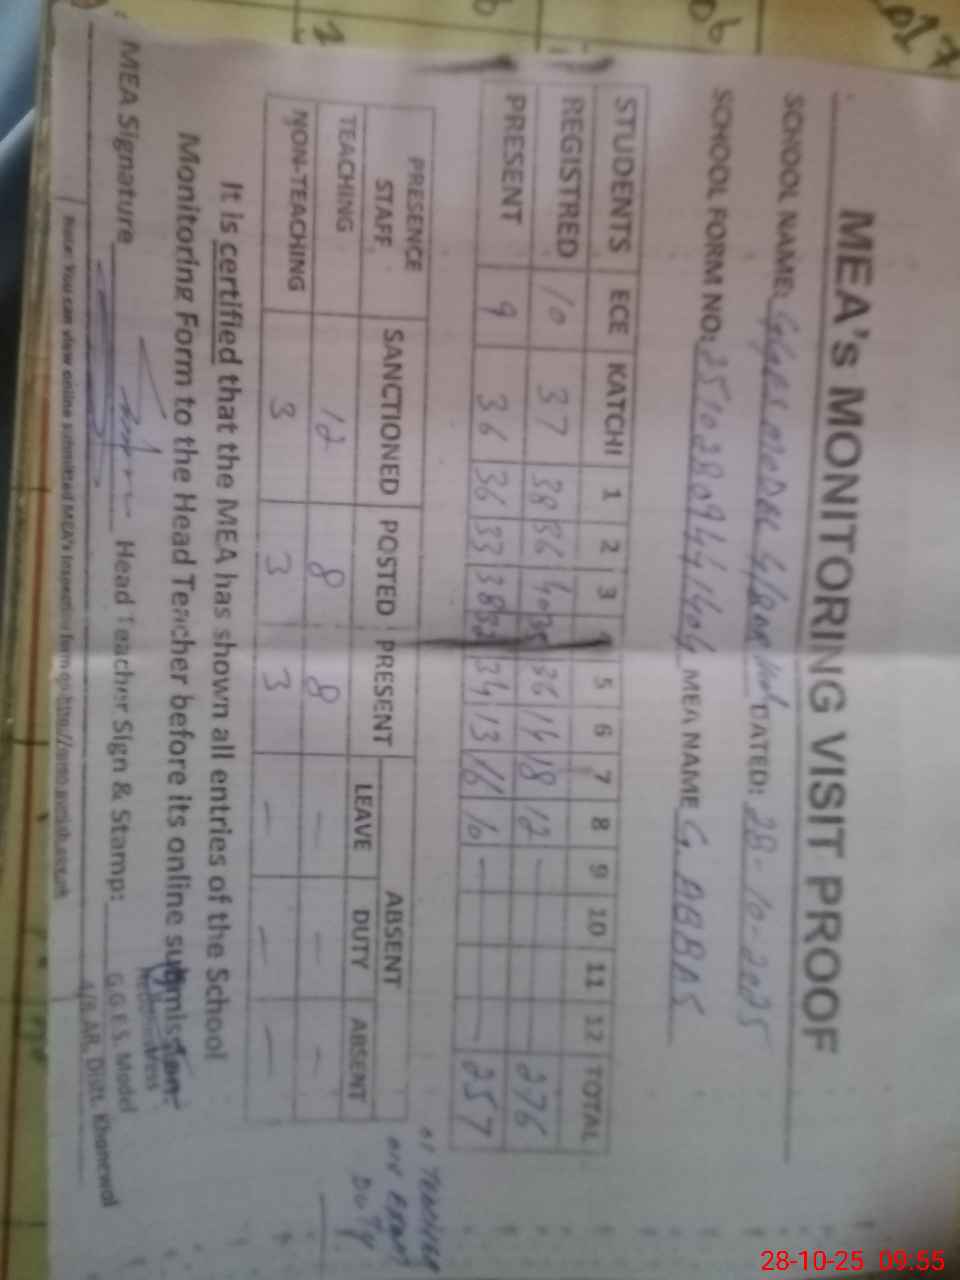 MEA's MONITORING VISIT PROOF
SCHOOL NAME: GGES MODEL 4/8AR DATED: 28-10-2025
SCHOOL FORM NO: MEA NAME G. ABBAS
STUDENTS ECE KATCHI 1 2 3 4 5 6 7 8 9 10 11 12 TOTAL
REGISTRED 10 37 38 36 40 35 36 14 18 12 — 276
PRESENT 9 36 36 33 38 32 34 13 16 10 — — 257
PRESENCE STAFF SANCTIONED POSTED PRESENT ABSENT
LEAVE DUTY ABSENT
TEACHING 12 8 8 — — —
NON-TEACHING 3 3 3 — — —
01 TEACHER
ON EXAM
DUTY
It is certified that the MEA has shown all entries of the School
Monitoring Form to the Head Teacher before its online submission.
MEA Signature Head Teacher Sign & Stamp:
G.G.E.S. Model
4/8.AR, Distt. Khanewal
Note: You can view online submitted MEA's Inspection form on
2017
28-10-25 09:55